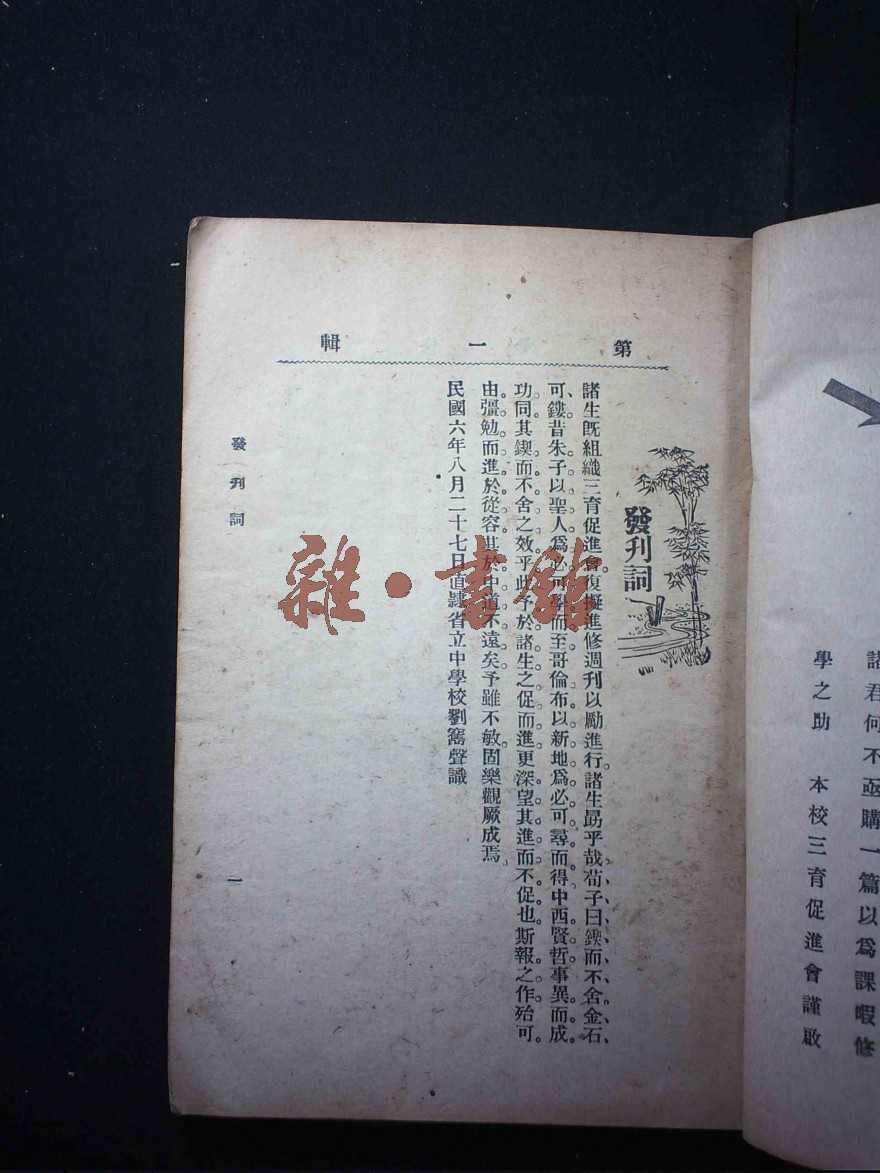 諸君何不亟購一篇以為課暇修
學之助　本校三育促進會謹啟
第一輯
發刊詞
諸生既組織三育促進會復擬進修週刊以勵進行諸生勗乎哉荀子曰鍥而不舍金石
可鏤昔朱子以聖人為必可學而至哥倫布以新地為必可尋而得中西賢哲事異而成
功同其鍥而不舍之效乎此予於諸生之促而進更深望其進而不促也斯報之作殆可
由彊勉而進於從容其於中道不遠矣予雖不敏固樂觀厥成焉
民國六年八月二十七日直隸省立中學校劉聲識
發刊詞
一
雜·書館